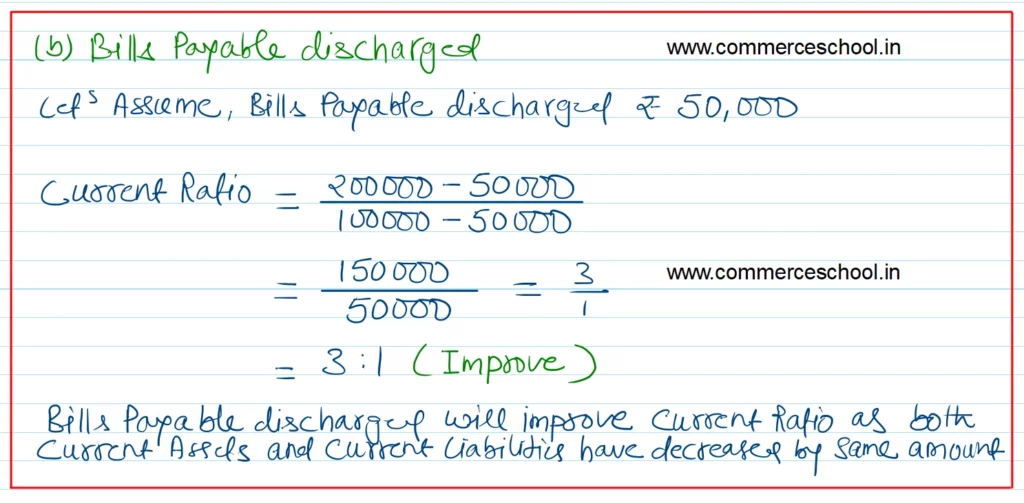 (b) Bills Payable discharged
www.commerceschool.in
Let's Assume, Bills Payable discharged ₹ 50,000
Current Ratio = 200000 - 50000
100000 - 50000
= 150000 = 3
50000 1
www.commerceschool.in
= 3:1 (Improve)
Bills Payable discharged will improve Current Ratio as both
Current Assets and Current Liabilities have decreased by same amount